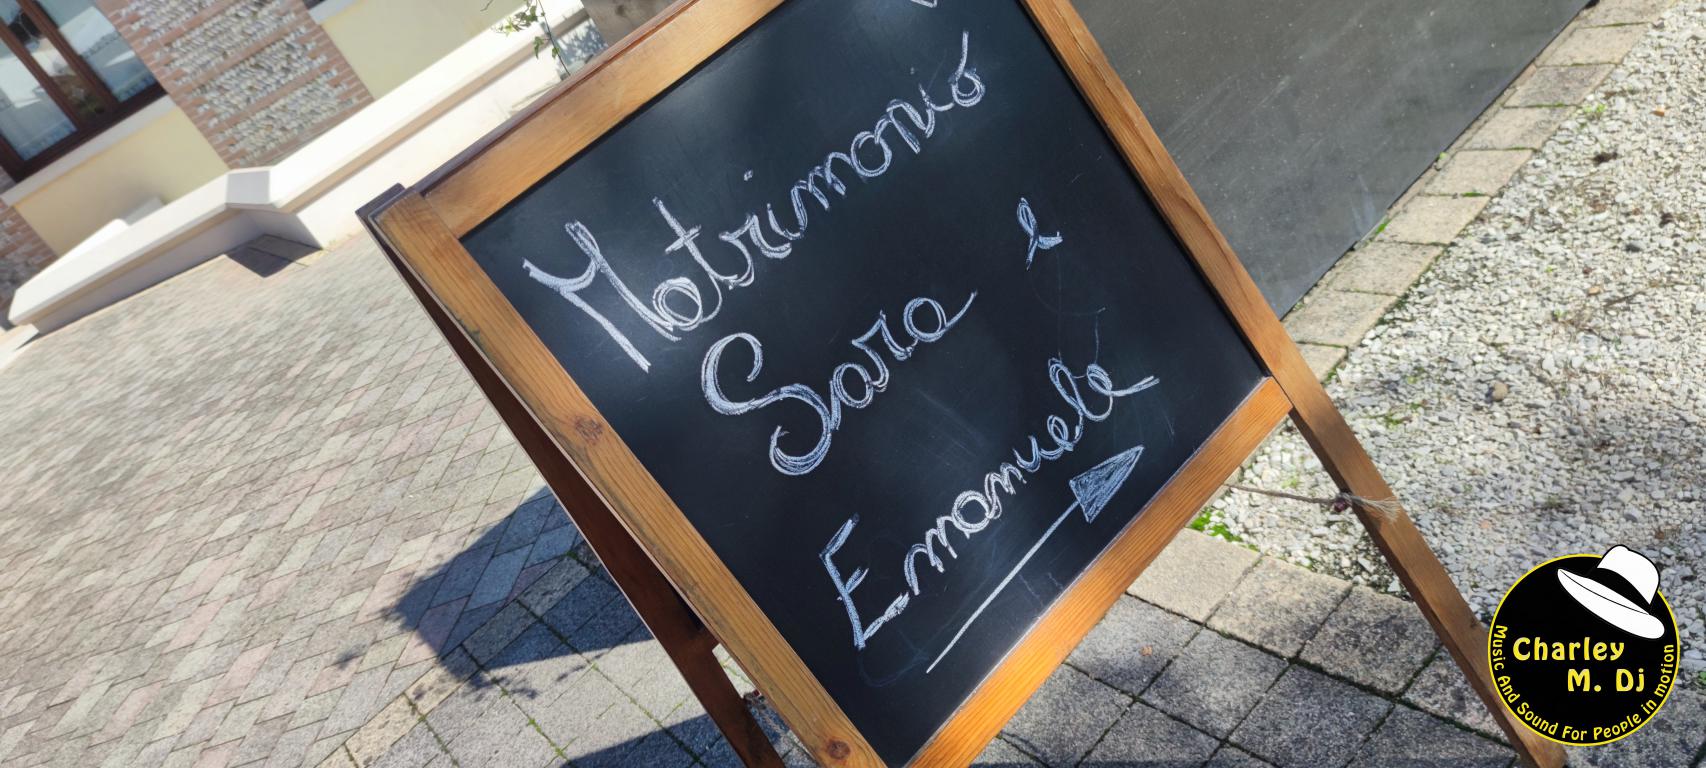 Matrimonio
Sara e
Emanuele
Charley
M. Dj
Music And Sound For People in motion